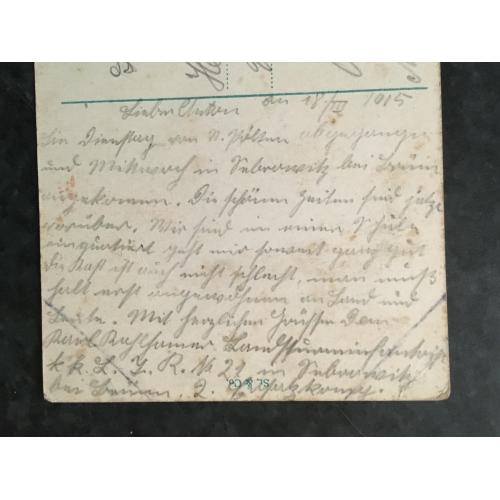 Lieber Anton am 18./III 1915
Bin Dienstag von St. Pölten abgegangen
und Mittwoch in Sebrowitz bei Brünn
angekommen. Die schönen Zeiten sind jetzt
vorüber. Wir sind in einer Schule
einquartiert geht mir soweit ganz gut
die Kost ist auch nicht schlecht, man muß
halt erst angewöhnen an Land und
Leute. Mit herzlichen Grüssen Dein
Karl Landsturminfantrist
k.k. L. I. R. No 21 in Sebrowitz
bei Brünn. 2. Ersatzkomp.
SL & Co.